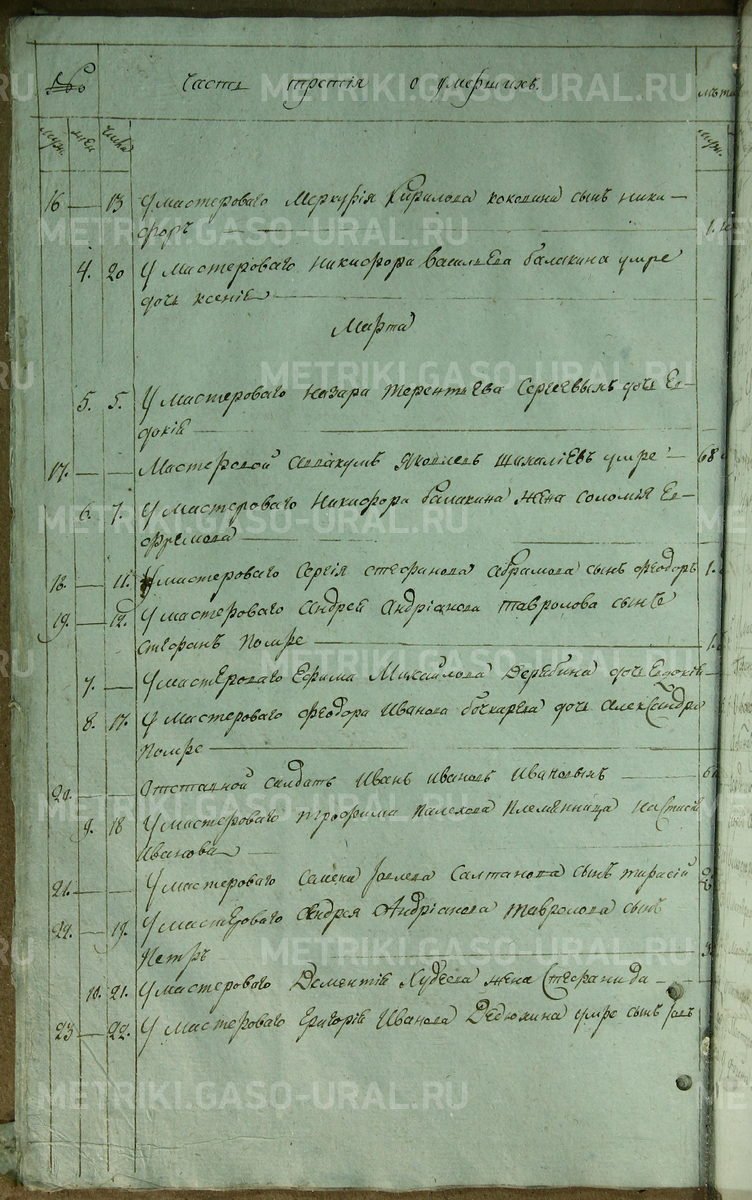 № Часть третія о умершихъ.
муж. жен. числа
16 — 13 У мастероваго Меркурія Кирилова коковина сынъ ники-
форъ
4. 20 У Мастероваго Никифора Васильева балакина умре
дочь ксенія
Марта
5. 5. У мастероваго Назара Терентьева Сергеевыхъ дочь Ев-
докія
17. — Мастеровой Аввакумъ Яковлевъ умре 68
6. 7. У мастероваго Никифора балакина жена соломія Ев-
фремова
18 — 11. У мастероваго Сергія стефанова абрамова сынъ Феодоръ 1.
19. — 12. У мастероваго Андрея Андріанова тавролова сынъ
Стефанъ помре
7. — У мастероваго Ефима Михайлова Дерябина дочь Евдокія
8. 17. У мастероваго Феодора Иванова бочкарева дочь Александра
помре
20. — Отставной салдатъ Иванъ Ивановъ
9. 18 У мастероваго трофима племянница настасія
Иванова
21. — У мастероваго Салтанова сынъ тарасій
22. — 19. У мастероваго Андрея Андріанова тавролова сынъ
Петръ
10. 21. У мастероваго Дементія Худеева жена Стефанида
23 — 22. У мастероваго Григорія Иванова Дедюхина умре сынъ
METRIKI.GASO-URAL.RU